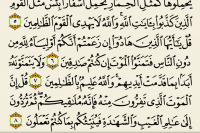 يَحْمِلُوهَا كَمَثَلِ ٱلْحِمَارِ يَحْمِلُ أَسْفَارًۢا بِئْسَ مَثَلُ ٱلْقَوْمِ
ٱلَّذِينَ كَذَّبُوا۟ بِـَٔايَٰتِ ٱللَّهِ وَٱللَّهُ لَا يَهْدِى ٱلْقَوْمَ ٱلظَّٰلِمِينَ ٥
قُلْ يَٰٓأَيُّهَا ٱلَّذِينَ هَادُوٓا۟ إِن زَعَمْتُمْ أَنَّكُمْ أَوْلِيَآءُ لِلَّهِ مِن
دُونِ ٱلنَّاسِ فَتَمَنَّوُا۟ ٱلْمَوْتَ إِن كُنتُمْ صَٰدِقِينَ ٦ وَلَا يَتَمَنَّوْنَهُۥٓ
أَبَدًۢا بِمَا قَدَّمَتْ أَيْدِيهِمْ وَٱللَّهُ عَلِيمٌۢ بِٱلظَّٰلِمِينَ ٧ قُلْ إِنَّ
ٱلْمَوْتَ ٱلَّذِى تَفِرُّونَ مِنْهُ فَإِنَّهُۥ مُلَٰقِيكُمْ ثُمَّ تُرَدُّونَ
إِلَىٰ عَٰلِمِ ٱلْغَيْبِ وَٱلشَّهَٰدَةِ فَيُنَبِّئُكُم بِمَا كُنتُمْ تَعْمَلُونَ ٨